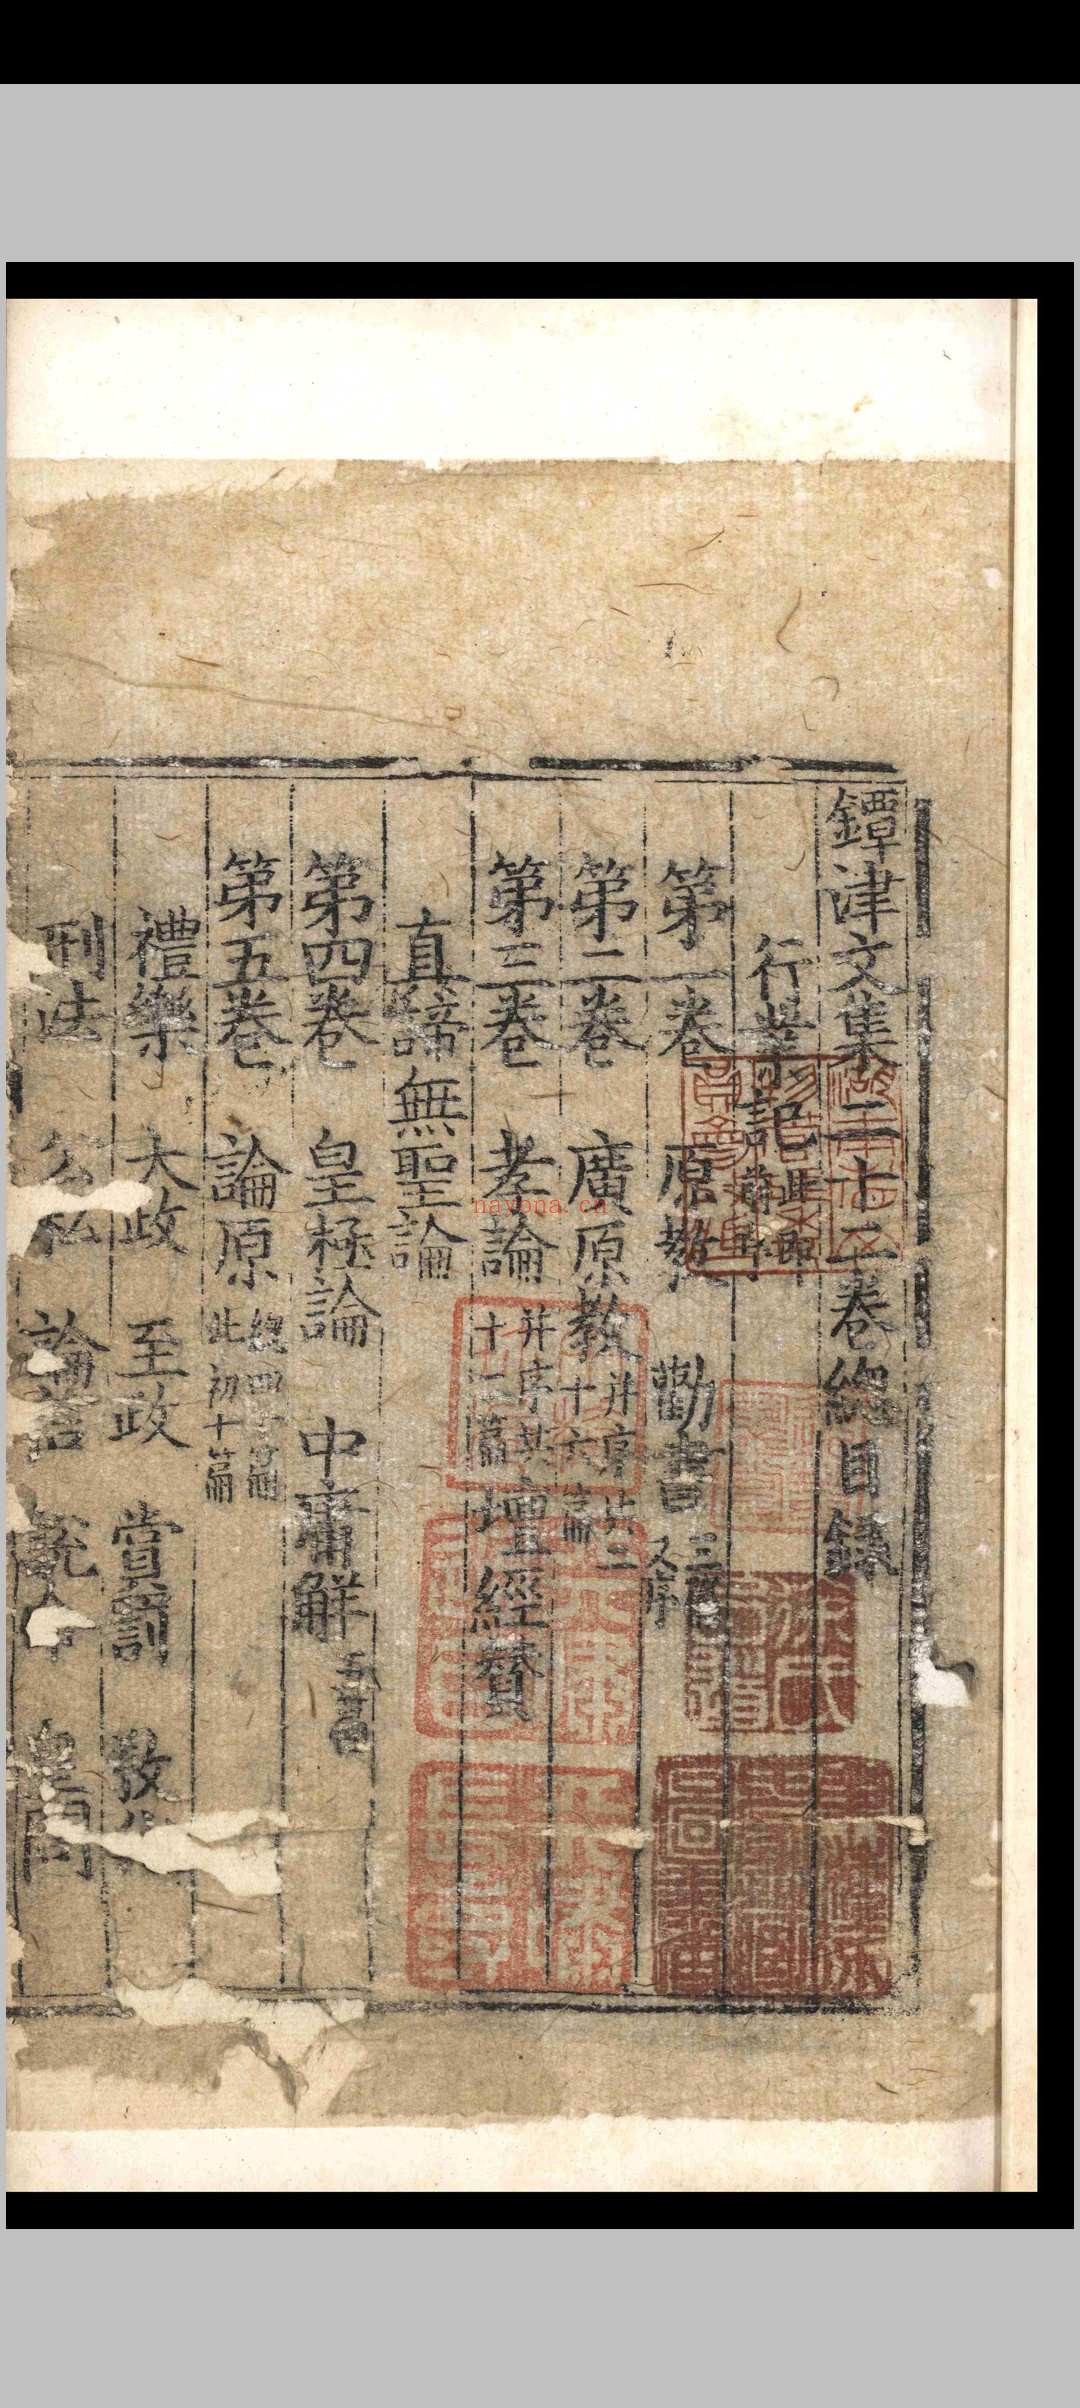 鐔津文集二十二卷緫目録
行業記 此卽
第一卷 原教 勸書 三篇 又序
第二卷 廣原教 并序共二十六篇
第三卷 孝論 并序共十二篇 壇經賛
真諦無聖論
第四卷 皇極論 中庸解 五篇
第五卷 論原 緫四十篇 此初十篇
禮樂 大政 至政 賞罰 教
刑法 公私 論言 問
nayona.cn